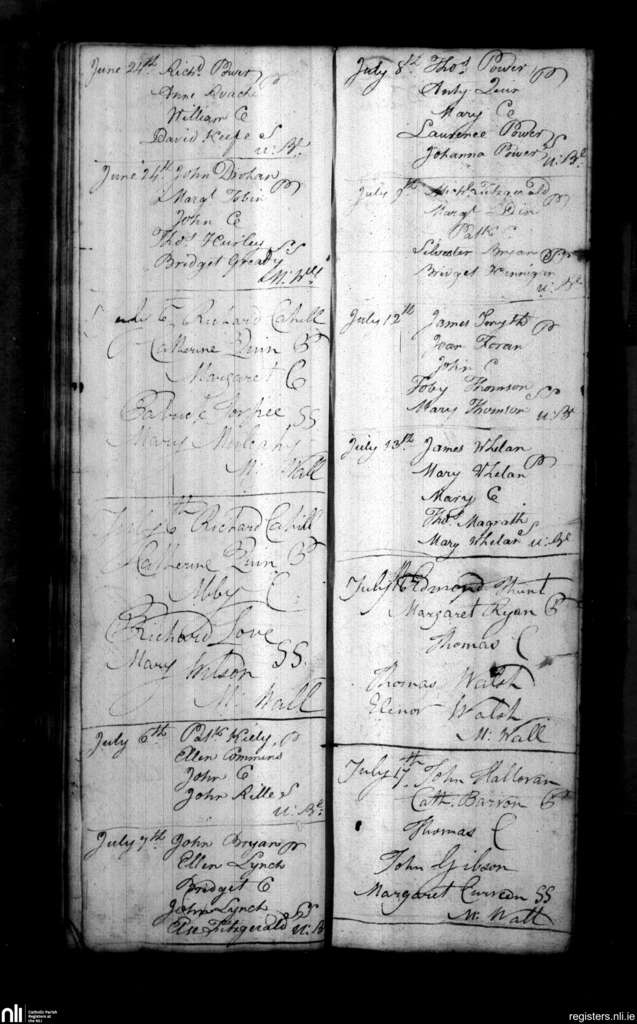 June 24th Richd Power P
Anne Roach
William C
David Keefe S
u: Bt
June 24th John Drohan
Margt Tobin P
John C
Thos Hurley
Bridget Gready Ss
Mr Wall
July 6 Richard Cahill
Catherine Quin P
Margaret C
SS
Mary Mulcahy
Mr Wall
July 6th Richard Cahill
Catherine Quin P
Abby C
Richard Love
Mary Wilson SS
Mr Wall
July 6th Patk Kiely P
Ellen Commins
John C
John Kille S
u: Bt
July 7th John Bryan P
Ellen Lynch
Bridget C
John Lynch
Else Fitzgerald Ss u: Bt
July 8th Thos Power P
Mary C
Laurence Power
Johanna Power Ss u: Bt
July 9th Fitzgerald P
Margt
Patk C
Silvester Bryan
Bridget
u: Bt
July 12th James Smyth P
Joan Foran
John C
Toby Thomson
Mary Thomson Ss u: Bt
July 13th James Whelan
Mary Whelan P
Mary C
Thos Magrath
Mary Whelan S u: Bt
July 16 Edmond Hunt
Margaret Ryan P
Thomas C
Thomas Walsh
Elenor Walsh
Mr Wall
July 17th John Halloran
Cath. Barron P
Thomas C
John Gibson
Margaret Curreen SS
Mr Wall
nli Catholic Parish
Registers at
the NLI
registers.nli.ie